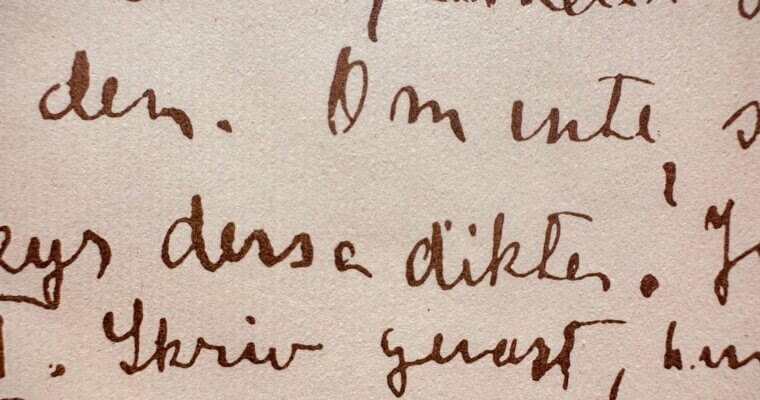 dem. Om inte s
kys dessa dikter! J
. Skriv genast, hur